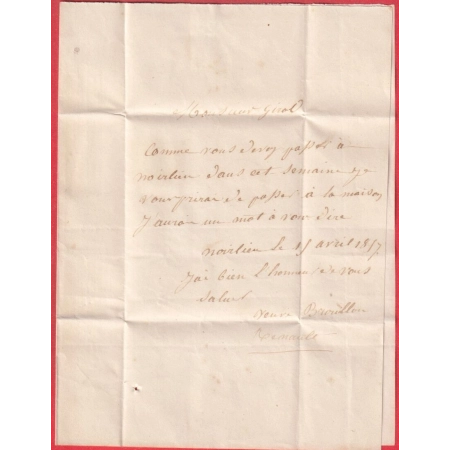 Monsieur Girol
Comme vous devez passer à
noirlieu dans cet semaine je
vous prirai de passer à la maison
J'aurai un mot à vous dire
noirlieu le 15 avril 1857
J'ai bien l'honneur de vous
saluer
veuve